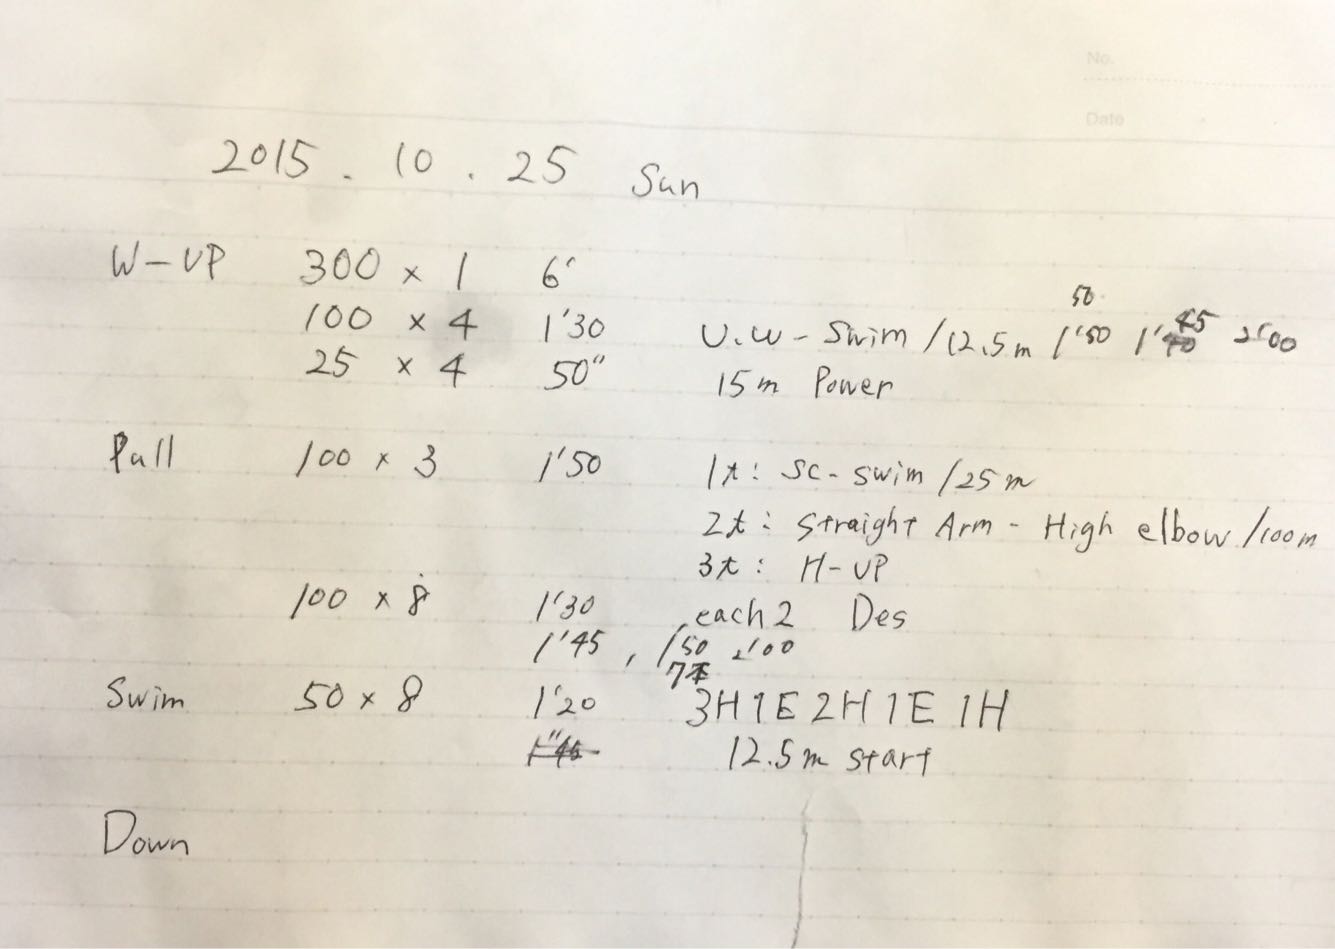 No.
Date
2015 . 10 . 25 Sun
W-UP 300 × 1 6'
50
100 × 4 1'30 U.W - Swim /12.5m 1'50 1'45 2'00
25 × 4 50" 15m Power
Pull 100 × 3 1'50 1t: SC- swim /25m
2t: Straight Arm - High elbow /100m
3t: H-UP
100 × 8 1'30 each 2 Des
1'45, 1'50 2'00
7本
Swim 50 × 8 1'20 3H 1E 2H 1E 1H
12.5m start
Down